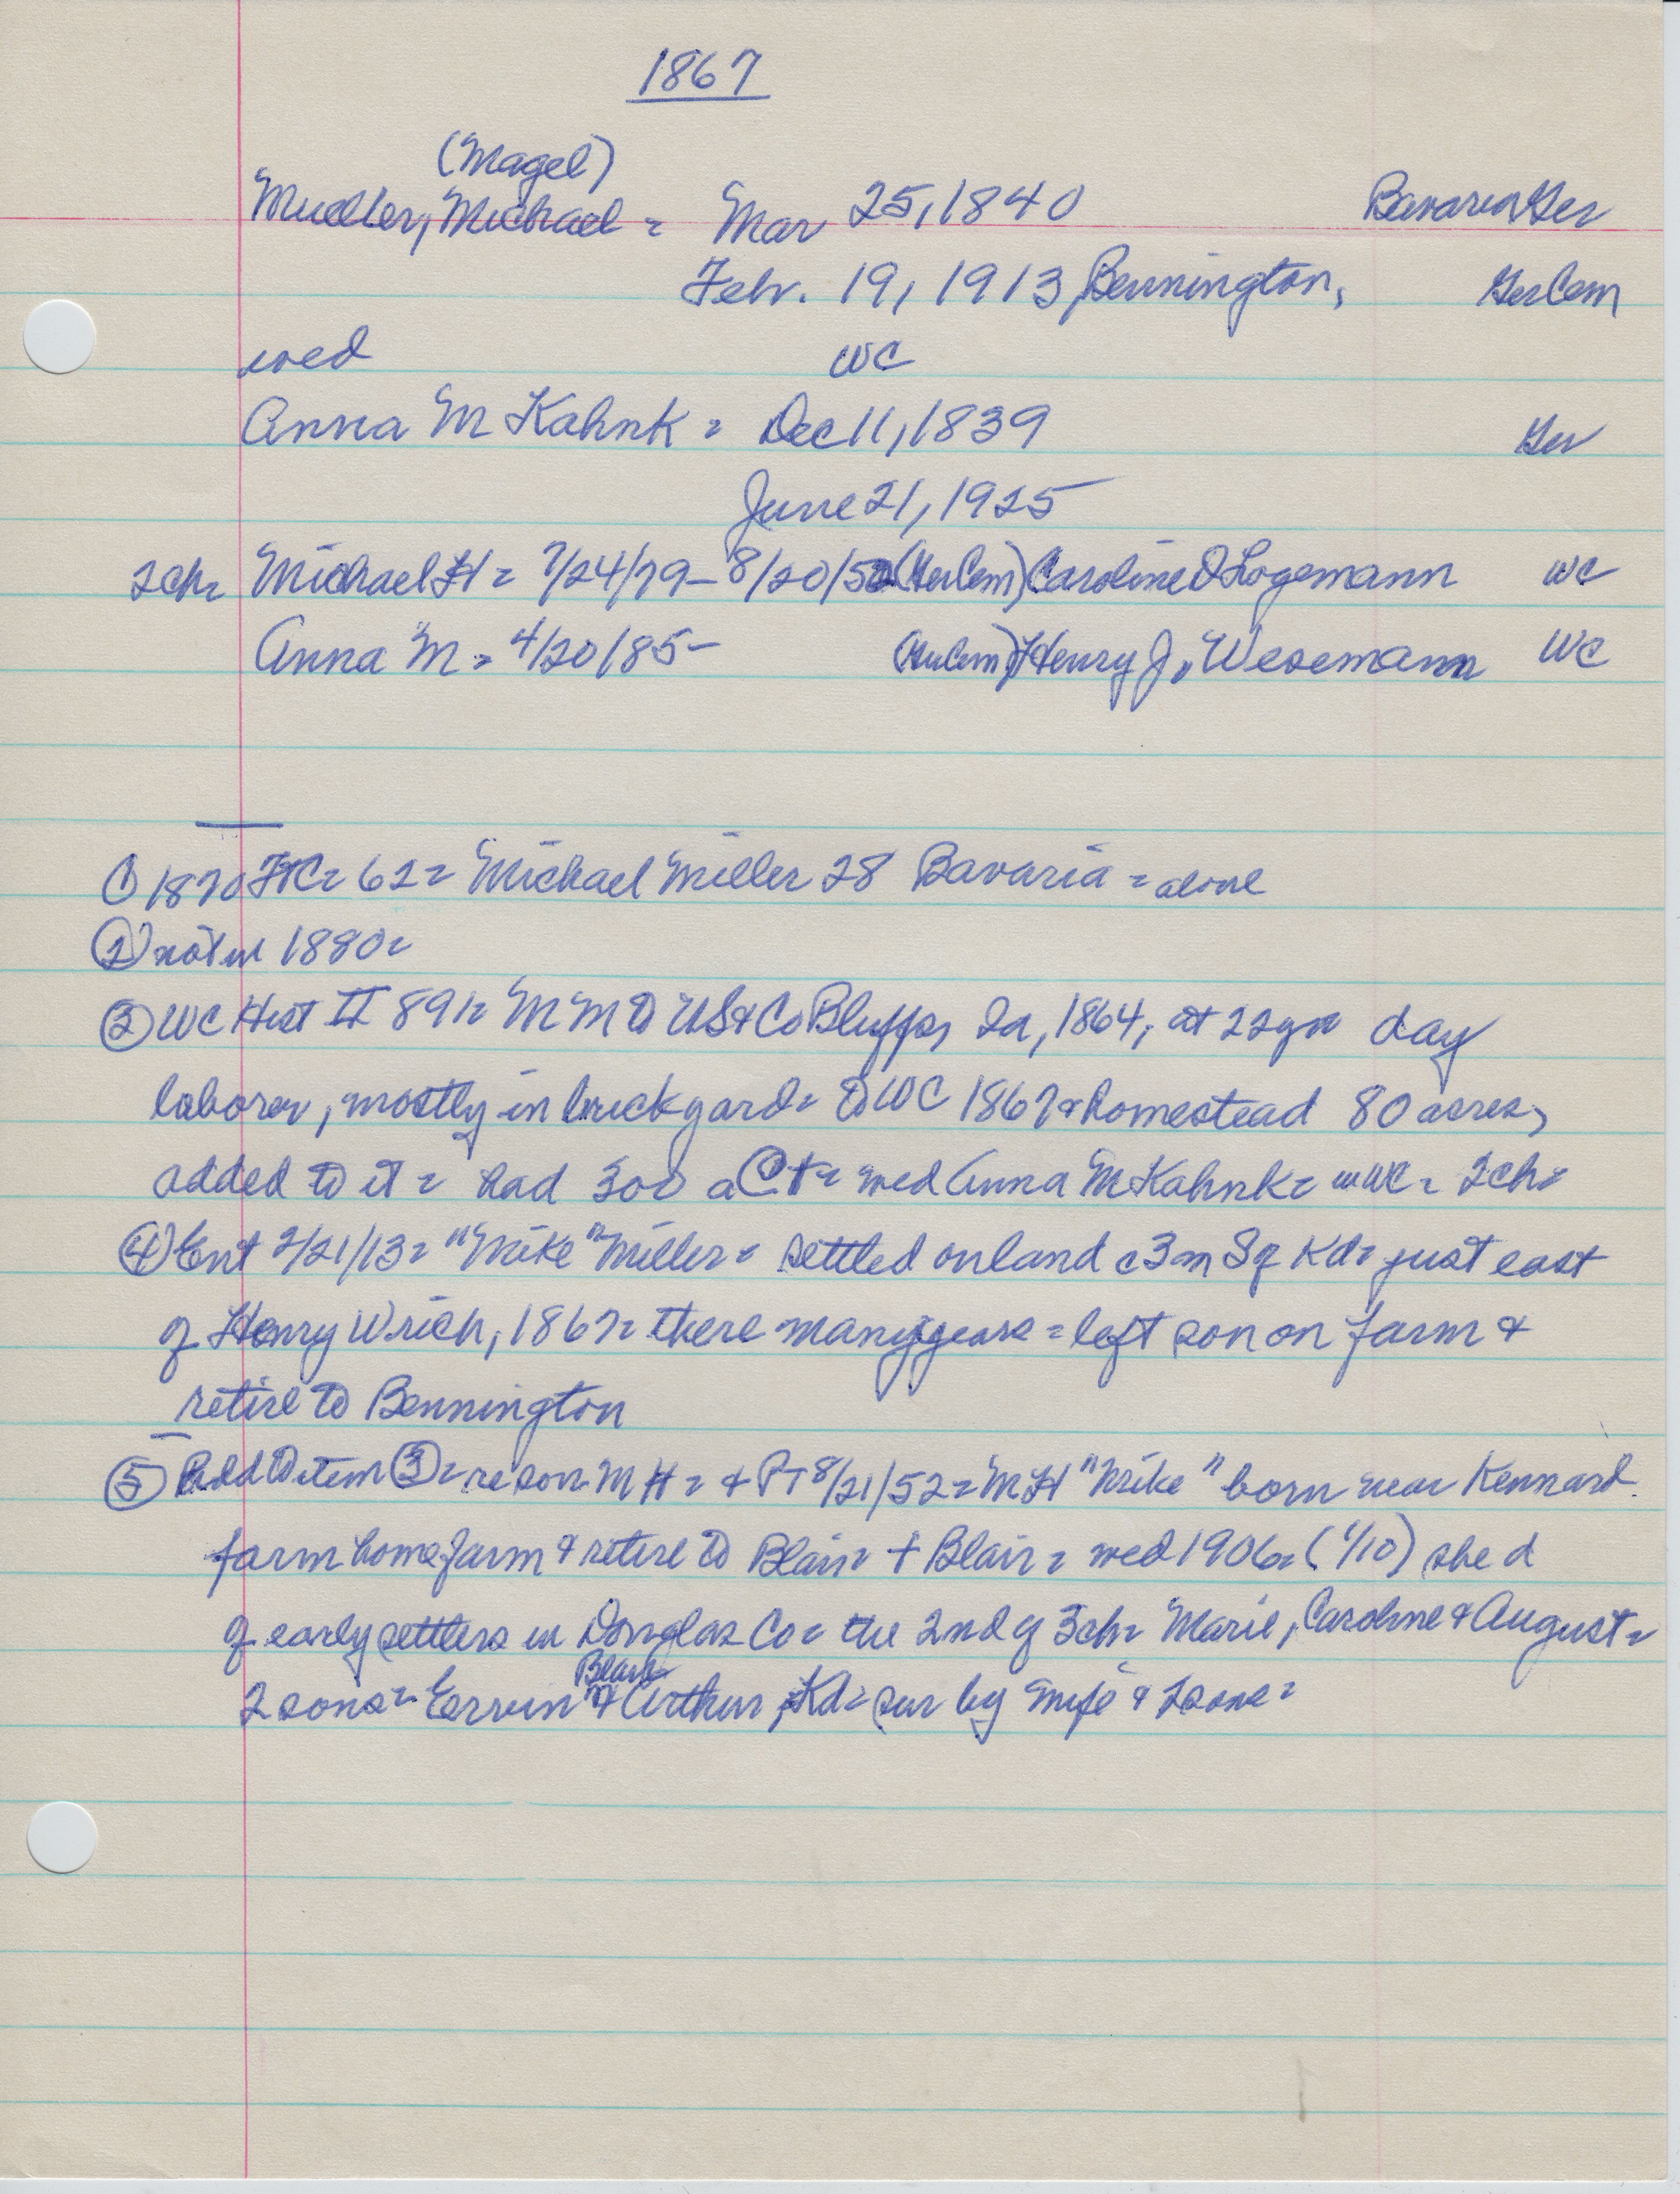 1867
(Magel)
Mueller, Michael = Mar 25, 1840 Bavaria Ger
Febr. 19, 1913 Bennington, GerCem
wed WC
Anna M Kahnk = Dec 11, 1839 Ger
June 21, 1925
2ch= Michael H = 7/24/79 - 8/20/52 (GerCem) Caroline D Logemann WC
Anna M. = 4/20/85 - (GerCem) Henry J. Wesemann WC
① 1870 FtC = 62 = Michael Miller 28 Bavaria = alone
② not in 1880 =
③ WC Hist II 891 = MM to US & Co Bluffs, Ia, 1864, at 22yr = day
laborer, mostly in brickyard = to WC 1867 & homestead 80 acres,
added to it = had 300 a @ + = wed Anna M Kahnk = in WC = 2ch =
④ Ent 2/21/13 = "Mike" Miller = settled on land c3m S of Kd = just east
of Henry Wrich, 1867 = there many years = left son on farm &
retire to Bennington
⑤ Add to item ③ = re son MH = & PT 8/21/52 = MH "Mike" born near Kennard
farm home farm & retire to Blair = + Blair = wed 1906 = (1/10) she d
of early settlers in Douglas Co = the 2nd of 3ch = Marie, Caroline & August =
Blair
2 sons = Ervin & Arthur, Kd = sur by wife & 2 sons =